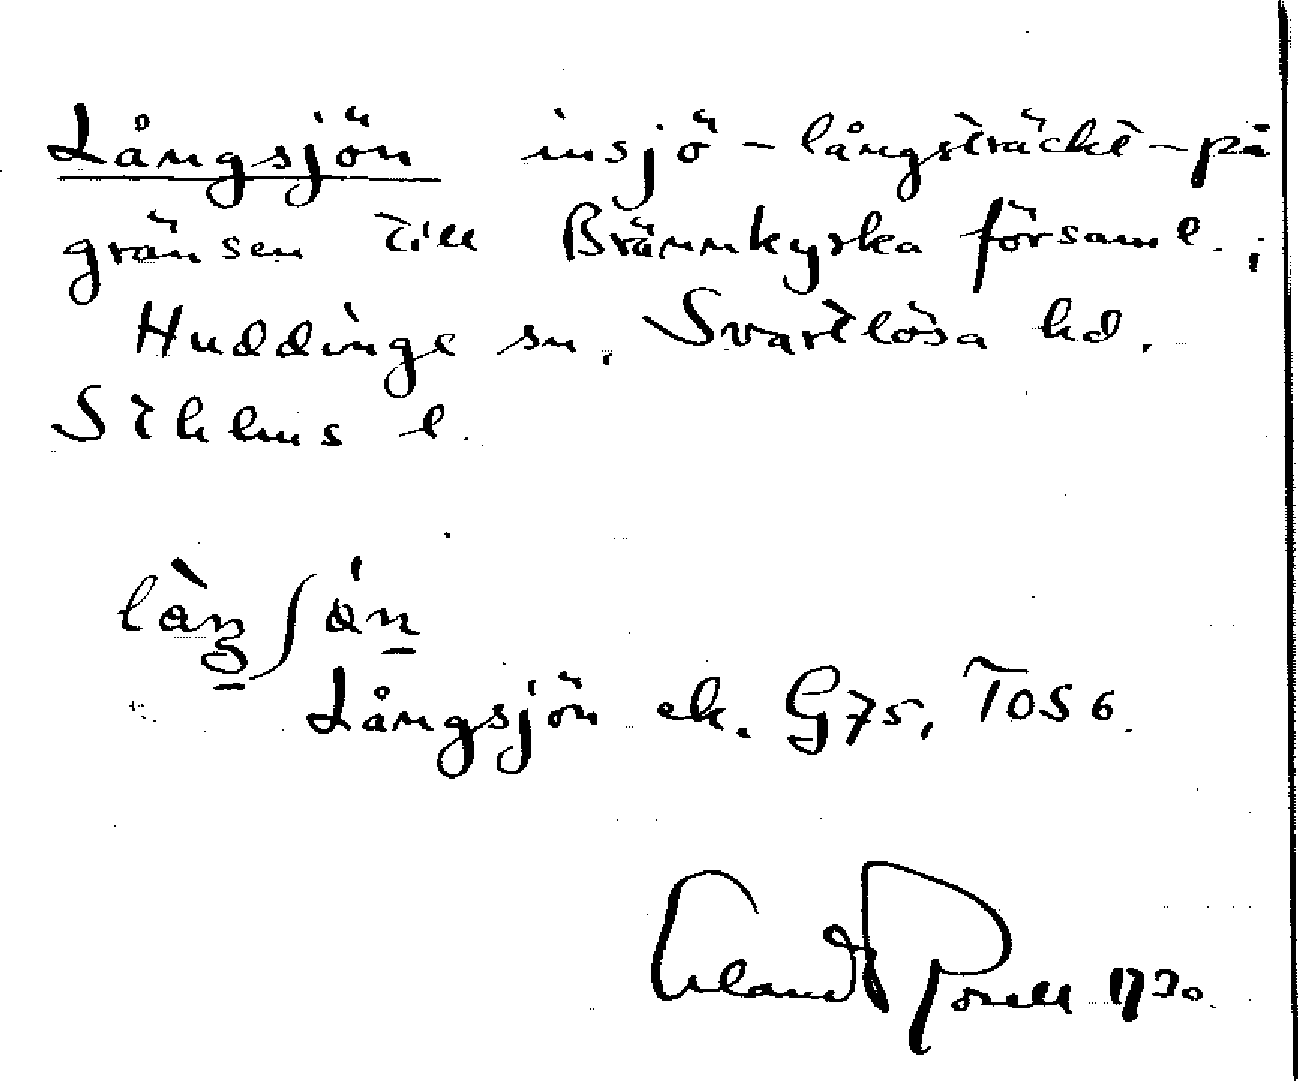 Långsjön insjö - långsträckt - på
gränsen till Brännkyrka församl. i
Huddinge sn. Svartlösa hd.
Sthlms l.
Långsjön ek. G75, TOS6.
Erland Rosell 1930.